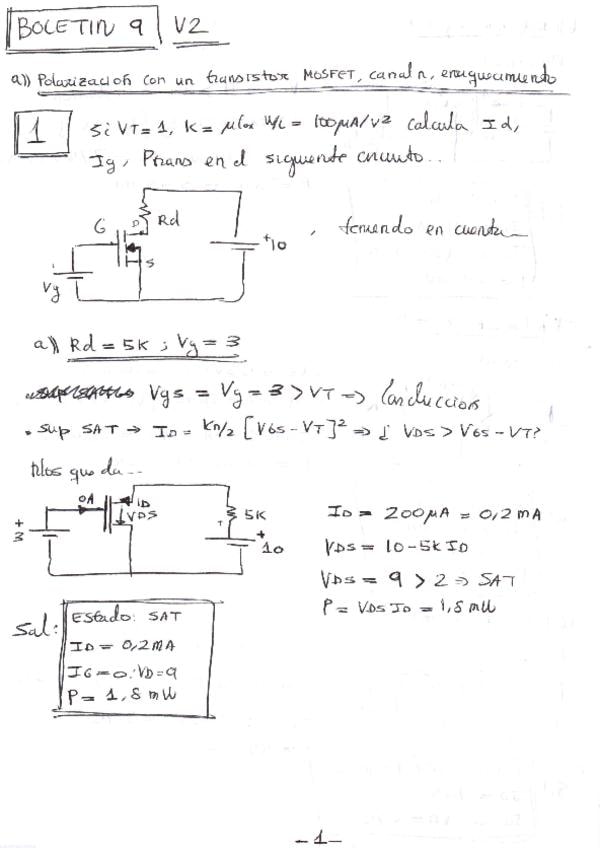 BOLETIN 9 V2
a)) Polarización con un transistor MOSFET, canal n, enriquecimiento
1 Si VT=1, K= μCox W/L = 100μA/V2 calcula Id,
Ig, Ptrans en el siguiente circuito..
G D Rd
S
+10
Vg
, teniendo en cuenta
a)) Rd = 5K ; Vg = 3
Vgs = Vg = 3 > VT => Conduccion
• Sup SAT → ID = Kn/2 [VGS - VT]² => ¿ VDS > VGS - VT?
Nos queda...
0A ID
VDS
5K
+
3
+
10
ID = 200μA = 0,2mA
VDS = 10-5K ID
VDS = 9 > 2 => SAT
P = VDS ID = 1,8 mW
Sol:
Estado: SAT
ID = 0,2mA
IG=0; VD=9
P= 1,8 mW
-1-